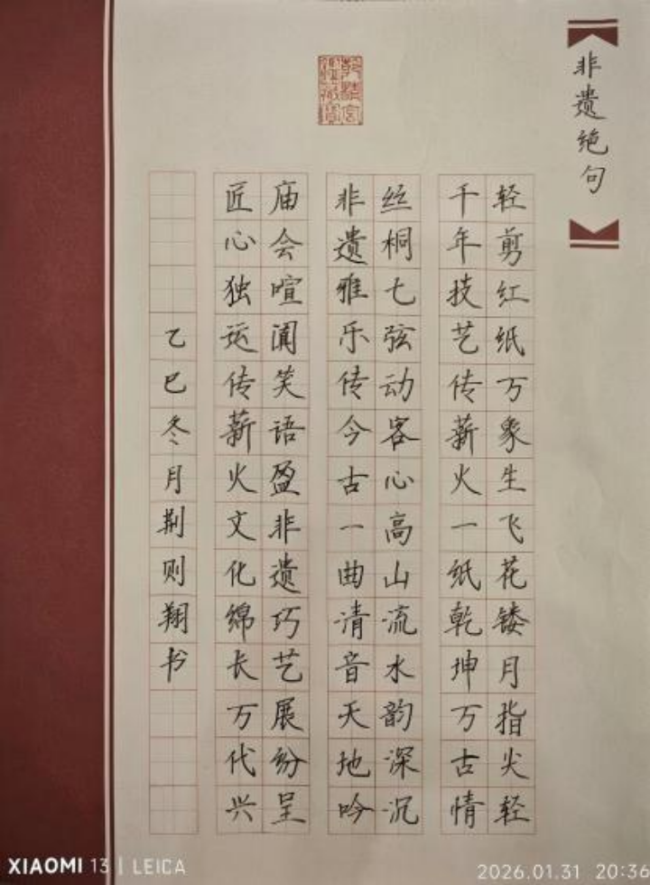 非遗绝句
轻剪红纸万象生飞花镂月指尖轻
千年技艺传薪火一纸乾坤万古情
丝桐七弦动客心高山流水韵深沉
非遗雅乐传今古一曲清音天地吟
庙会喧阗笑语盈非遗巧艺展纷呈
匠心独运传薪火文化绵长万代兴
乙巳冬月荆则翔书
XIAOMI 13 | LEICA
2026.01.31 20:36